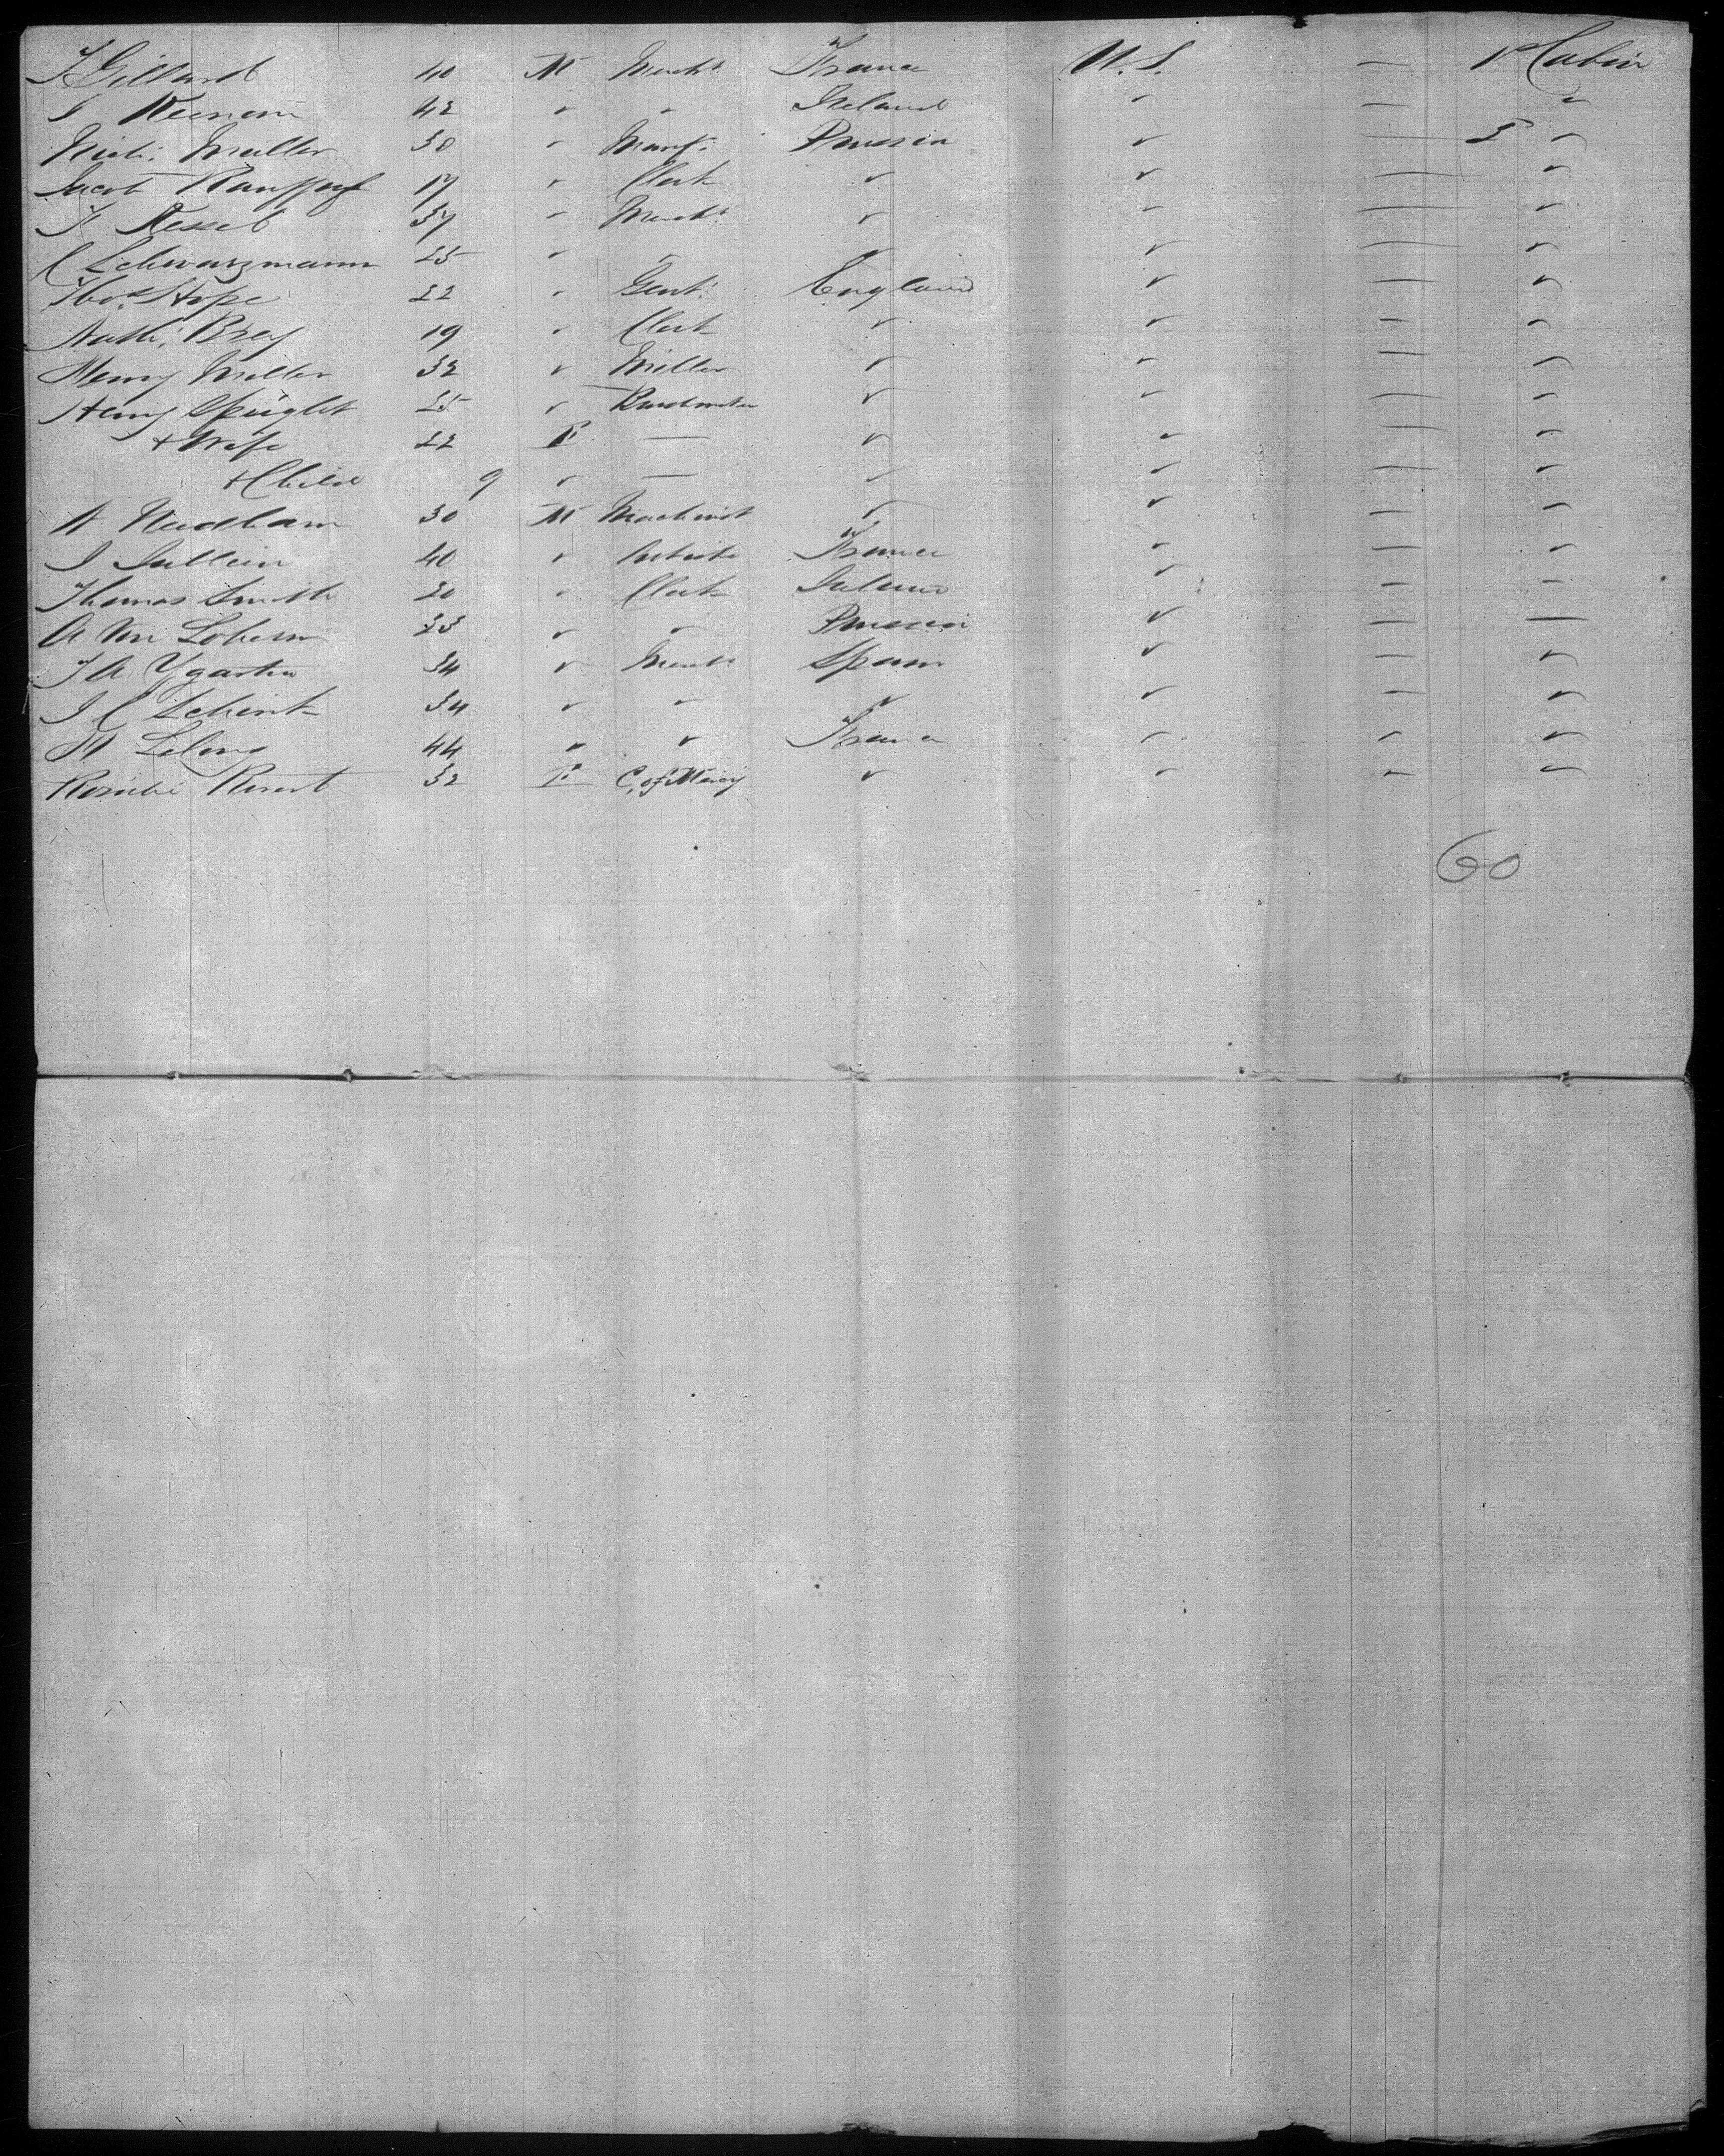 J Gilland 40 M Mercht France U.S. — 1st Cabin
J Keenan 42 " " Ireland " — "
Nichs Muller 30 " Manf. Prussia " — "
Jacob 17 " Clerk " " — "
F Kessel 37 " Mercht " " — "
C Schwarzmann 25 " " " " — "
Thos Hope 22 " Gent. England " — "
Nath. Brey 19 " Clerk " " — "
Henry Miller 32 " Miller " " — "
Henry Speight 25 " " " — "
+ Wife 22 F — " " — "
+ Child 9 " — " " — "
A Needham 30 M Machinist " " — "
J Jullien 40 " Artiste France " — "
Thomas Smith 20 " Clerk Ireland " — "
A Von Lobern 23 " " Prussia " — —
J A Ygartua 34 " Mercht Spain " — "
J C Schink 34 " " " " — "
M Lelong 44 " " France " " "
32 F C. of Mercy " " " "
60